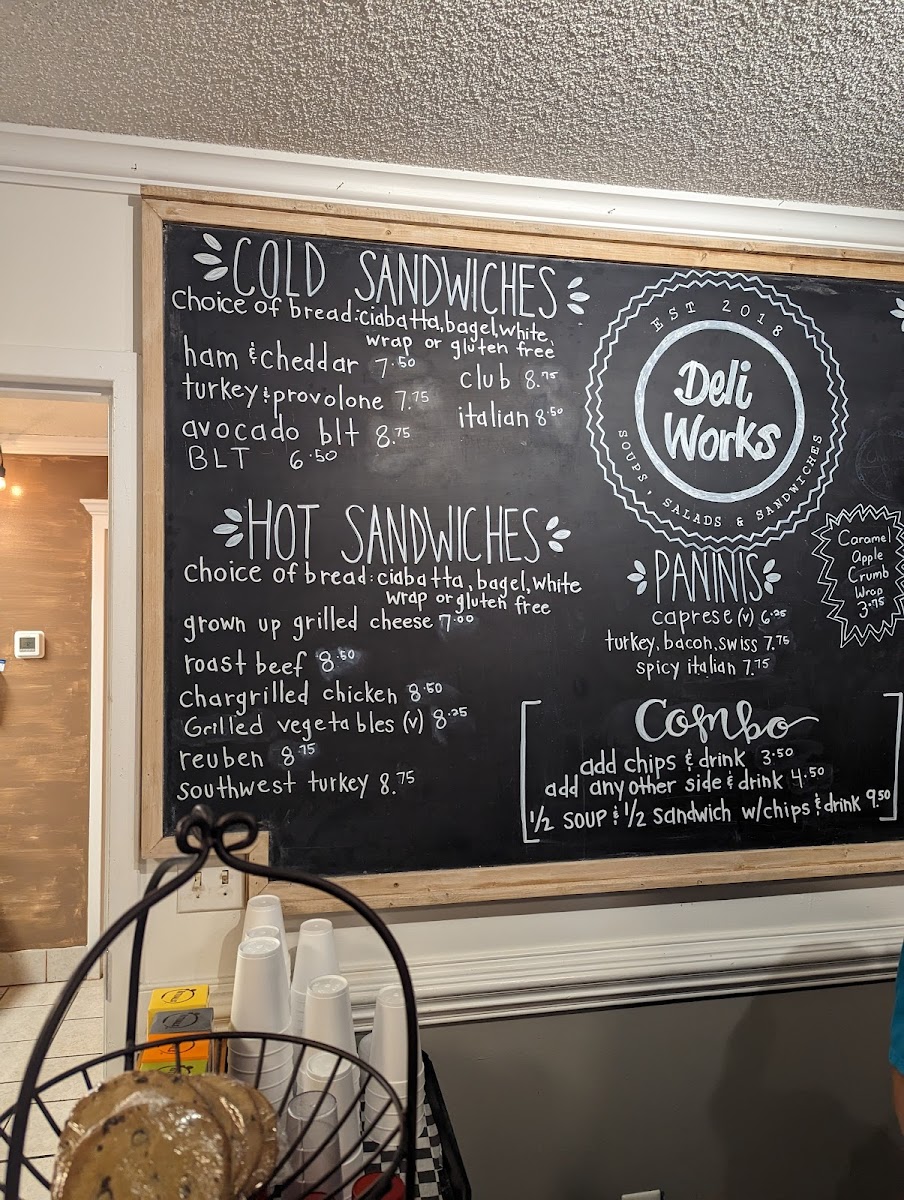 COLD SANDWICHES
choice of bread: ciabatta, bagel, white,
wrap or gluten free
ham & cheddar 7.50
turkey & provolone 7.75
avocado blt 8.75
BLT 6.50
club 8.75
italian 8.50
HOT SANDWICHES
choice of bread: ciabatta, bagel, white
wrap or gluten free
grown up grilled cheese 7.00
roast beef 8.50
chargrilled chicken 8.50
Grilled vegetables (v) 8.25
reuben 8.75
southwest turkey 8.75
EST 2018
Deli
Works
SOUPS, SALADS & SANDWICHES
PANINIS
caprese (v) 6.25
turkey, bacon, swiss 7.75
spicy italian 7.75
Caramel
Apple
Crumb
Wrap
3.75
Combo
add chips & drink 3.50
add any other side & drink 4.50
1/2 soup & 1/2 sandwich w/chips & drink 9.50